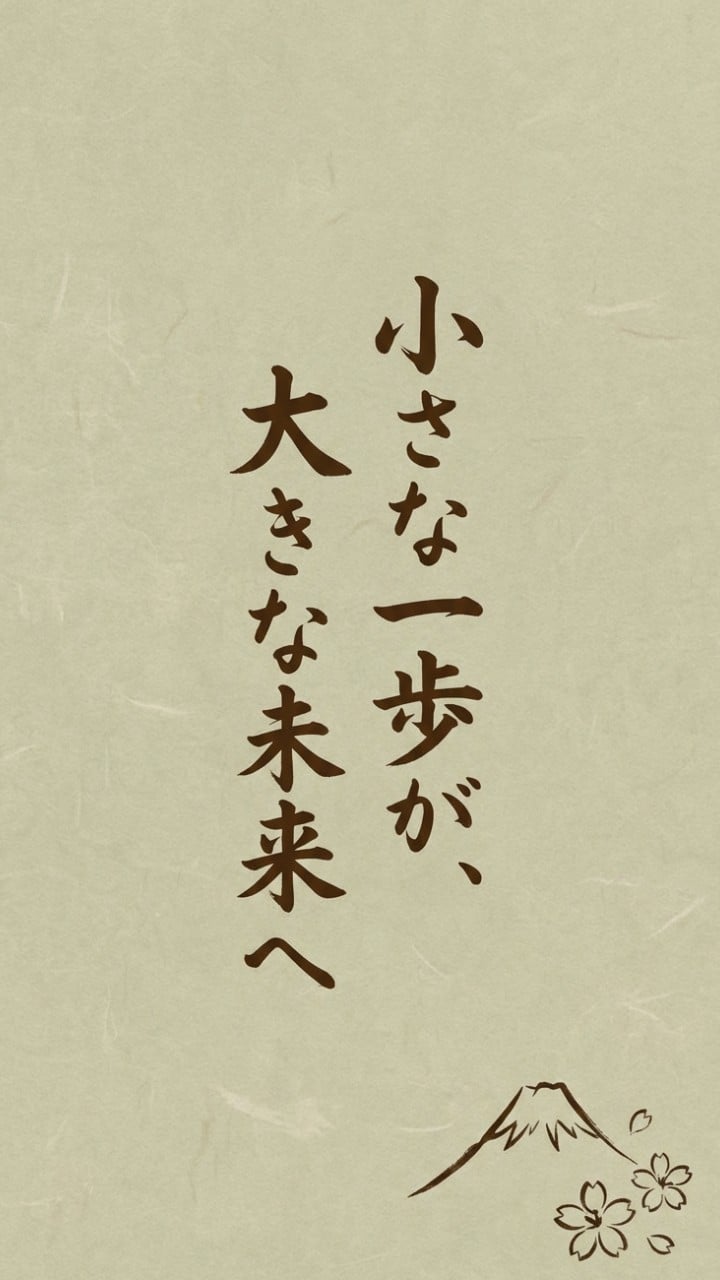 小さな一歩が、
大きな未来へ